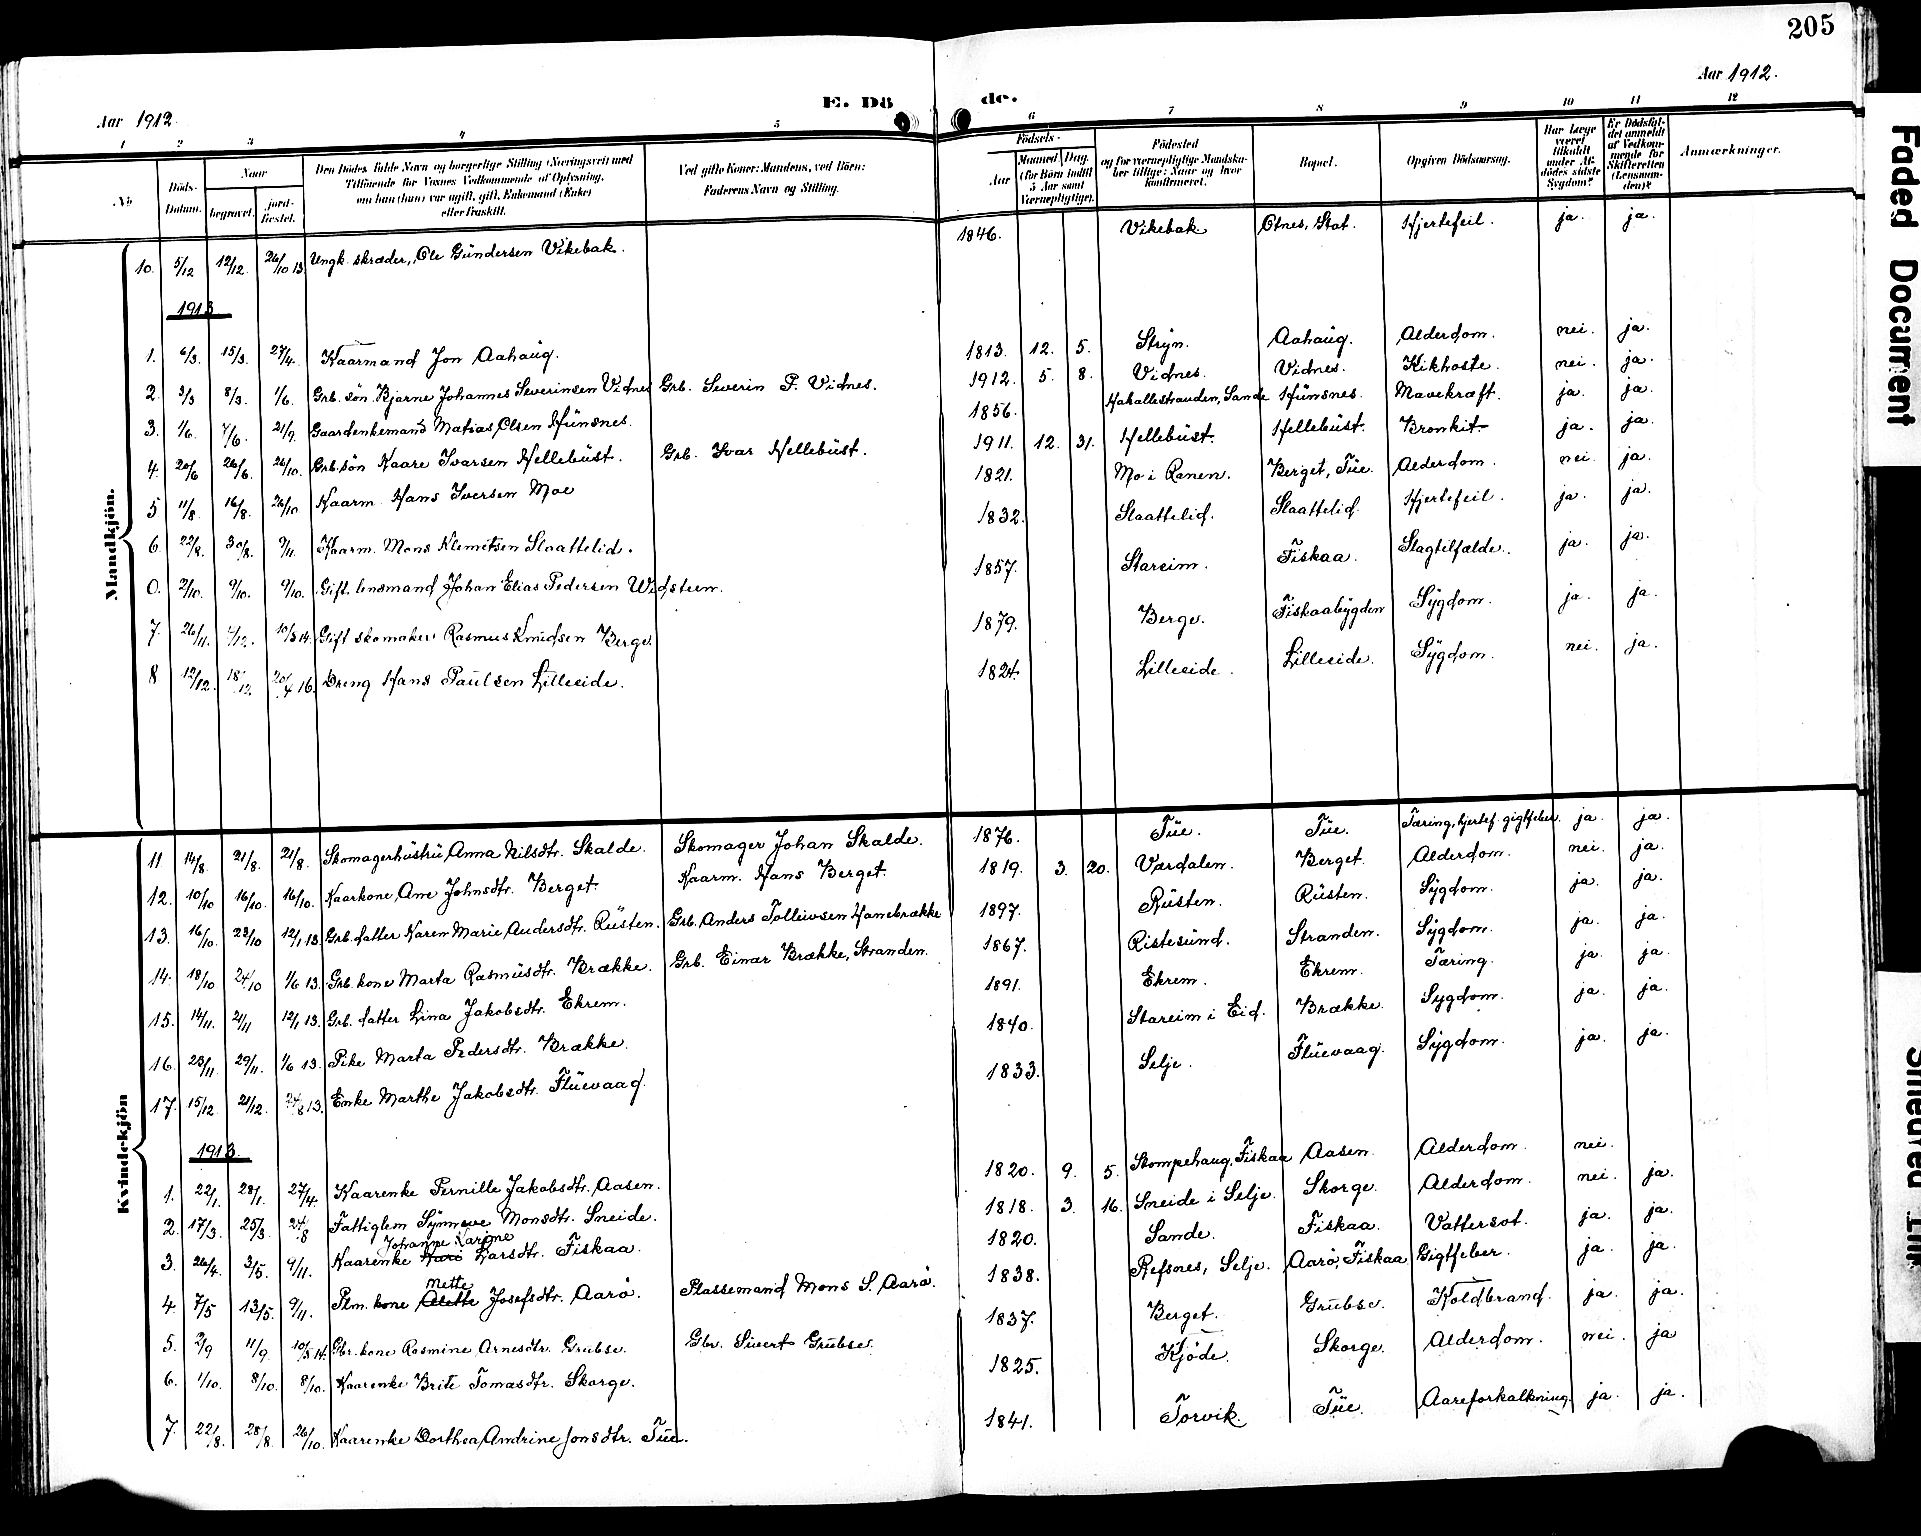 205
Aar 1912.
Aar 1912.
E. Dö de.
1 2 3 4 5 6 7 8 9 10 11 12
No Döds-Datum. Naar begravet. jord-fæstet. Den Dödes fulde Navn og borgerlige Stilling (Næringsvei) med Tilföiende for Voxnes Vedkommende af Oplysning, om han (hun) var ugift, gift, Enkemand (Enke) eller fraskilt. Ved gifte Koner: Mandens, ved Börn: Faderens Navn og Stilling. Födsels- Aar Maaned Dag. (for Börn indtil 5 Aar samt Værnepligtige). Födested og for værnepligtige Mandskaber tillige: Naar og hvor konfirmeret. Bopæl. Opgiven Dödsaarsag. Har Læge været tilkaldt under Afdödes sidste Sygdom? Er Dödsfaldet anmeldt af Vedkommende for Skifteretten (Lensmanden)? Anmærkninger.
Mandkjön.
10. 5/12 12/12. 26/10 13. Ungk. skræder, Ole Gundersen Vikebak. 1846. Vikebak Otnes, Stat. Hjertefeil. ja. ja.
1913
1. 6/3. 15/3. 27/4. Kaarmand Jon Aahaug. 1813. 12. 5. Stryn. Aahaug. Alderdom. nei. ja.
2. 3/3 8/3. 1/6. Grb. søn Bjarne Johannes Severinsen Vidnes Grb. Severin P. Vidnes. 1912. 5. 8. Vidnes. Vidnes. Kikhoste. nei. ja.
3. 1/6. 7/6. 21/9. Gaardenkemand Matias Olsen Hunsnes. 1856. Hakallestranden, Sande Hunsnes. Mavekræft. ja. ja.
4. 20/6 26/6. 26/10. Grb. søn Kaare Ivarsen Hellebust. Grb. Ivar Hellebust. 1911. 12. 31. Hellebust. Hellebust. Bronkit. ja. ja.
5 11/8. 16/8. 26/10 Kaarm. Hans Iversen Moe 1821. Mo i Ranen. Berget, Tue. Alderdom. nei. ja.
6. 22/8. 30/8. 9/11. Kaarm. Mons Klemitsen Slaattelid. 1832. Slaattelid. Slaattelid. Hjertefeil. ja. ja.
0. 2/10. 9/10. 9/10. Gift. lensmand Johan Elias Pedersen Widsteen. 1857. Stareim. Fiskaa. Slagtilfælde. ja. ja.
7. 26/11. 4/12. 10/3 14. Gift skomaker Rasmus Knudsen Berge. 1879. Berge. Fiskaabygden Sygdom. ja. ja.
8 12/12. 18/12. 20/4 16. Dreng Hans Paulsen Lilleeide. 1824. Lilleeide. Lilleeide. Sygdom. nei. ja.
Kvindekjön
11 14/8. 21/8. 21/8. Skomagerhustru Anna Nilsdtr. Skalde. Skomager Johan Skalde. 1876. Tue. Tue. Tæring, hjertef. gigtfeber. ja. ja.
12. 10/10 16/10. 16/10. Kaarkone Ane Johnsdtr. Berget. Kaarm. Hans Berget. 1819. 3. 20. Værdalen. Berget. Alderdom. nei. ja.
13. 16/10. 23/10 12/1 13. Grb. datter Karen Marie Andersdtr. Rusten. Grb. Anders Tolleivsen Hanebrække 1897. Rusten. Rusten. Sygdom. ja. ja.
14. 18/10 24/10 1/6 13. Grb. kone Marta Rasmusdtr. Brække. Grb. Einar Brække, Stranden. 1867. Ristesund. Stranden. Sygdom. ja. ja.
15. 14/11. 21/11 12/1 13. Grb. datter Lina Jakobsdtr. Ekrem. 1891. Ekrem. Ekrem. Tæring. ja. ja.
16. 23/11. 29/11. 1/6 13. Pike Marta Pedersdtr. Brække. 1840. Stareim i Eid. Brække. Sygdom. ja. ja.
17. 15/12. 21/12. 24/8 13. Enke Marthe Jakobsdtr. Fluevaag. 1833. Selje. Fluevaag. Sygdom. ja. ja.
1913.
1. 22/1. 28/1. 27/4. Kaarenke Pernille Jakobsdtr. Aasen. 1820. 9. 5. Stompehaug, Fiskaa Aasen. Alderdom. nei.
2. 17/3. 25/3. 24/8 Fattiglem Synneve Monsdtr. Sneide. 1818. 3. 16. Sneide i Selje. Skorge. Alderdom. nei. ja.
Johanne Karine
3. 26/4. 3/5. 9/11. Kaarenke Kari Larsdtr. Fiskaa. 1820. Sande. Fiskaa. Vattersot. ja. ja.
Mette
4. 7/5 13/5. 9/11. Plm. kone Alette Josefsdtr. Aarø. Plassemand Mons S. Aarø. 1838. Refsnes, Selje. Aarø, Fiskaa Gigtfeber. ja. ja.
5. 2/9 11/9. 10/5 14. Gbr. kone Rasmine Arnesdtr. Grubse. Gbr. Sivert Grubse. 1837. Berget. Grubse. Koldbrand. ja. ja.
6. 1/10. 8/10. 8/10. Kaarenke Brite Tomasdtr. Skorge. 1825. Kjøde. Skorge. Alderdom. nei. ja
7. 22/8. 28/8. 26/10. Kaarenke Dorthea Andrine Jonsdtr. Tue. 1841. Torvik. Tue. Aareforkalkning. ja. ja.
Faded Document